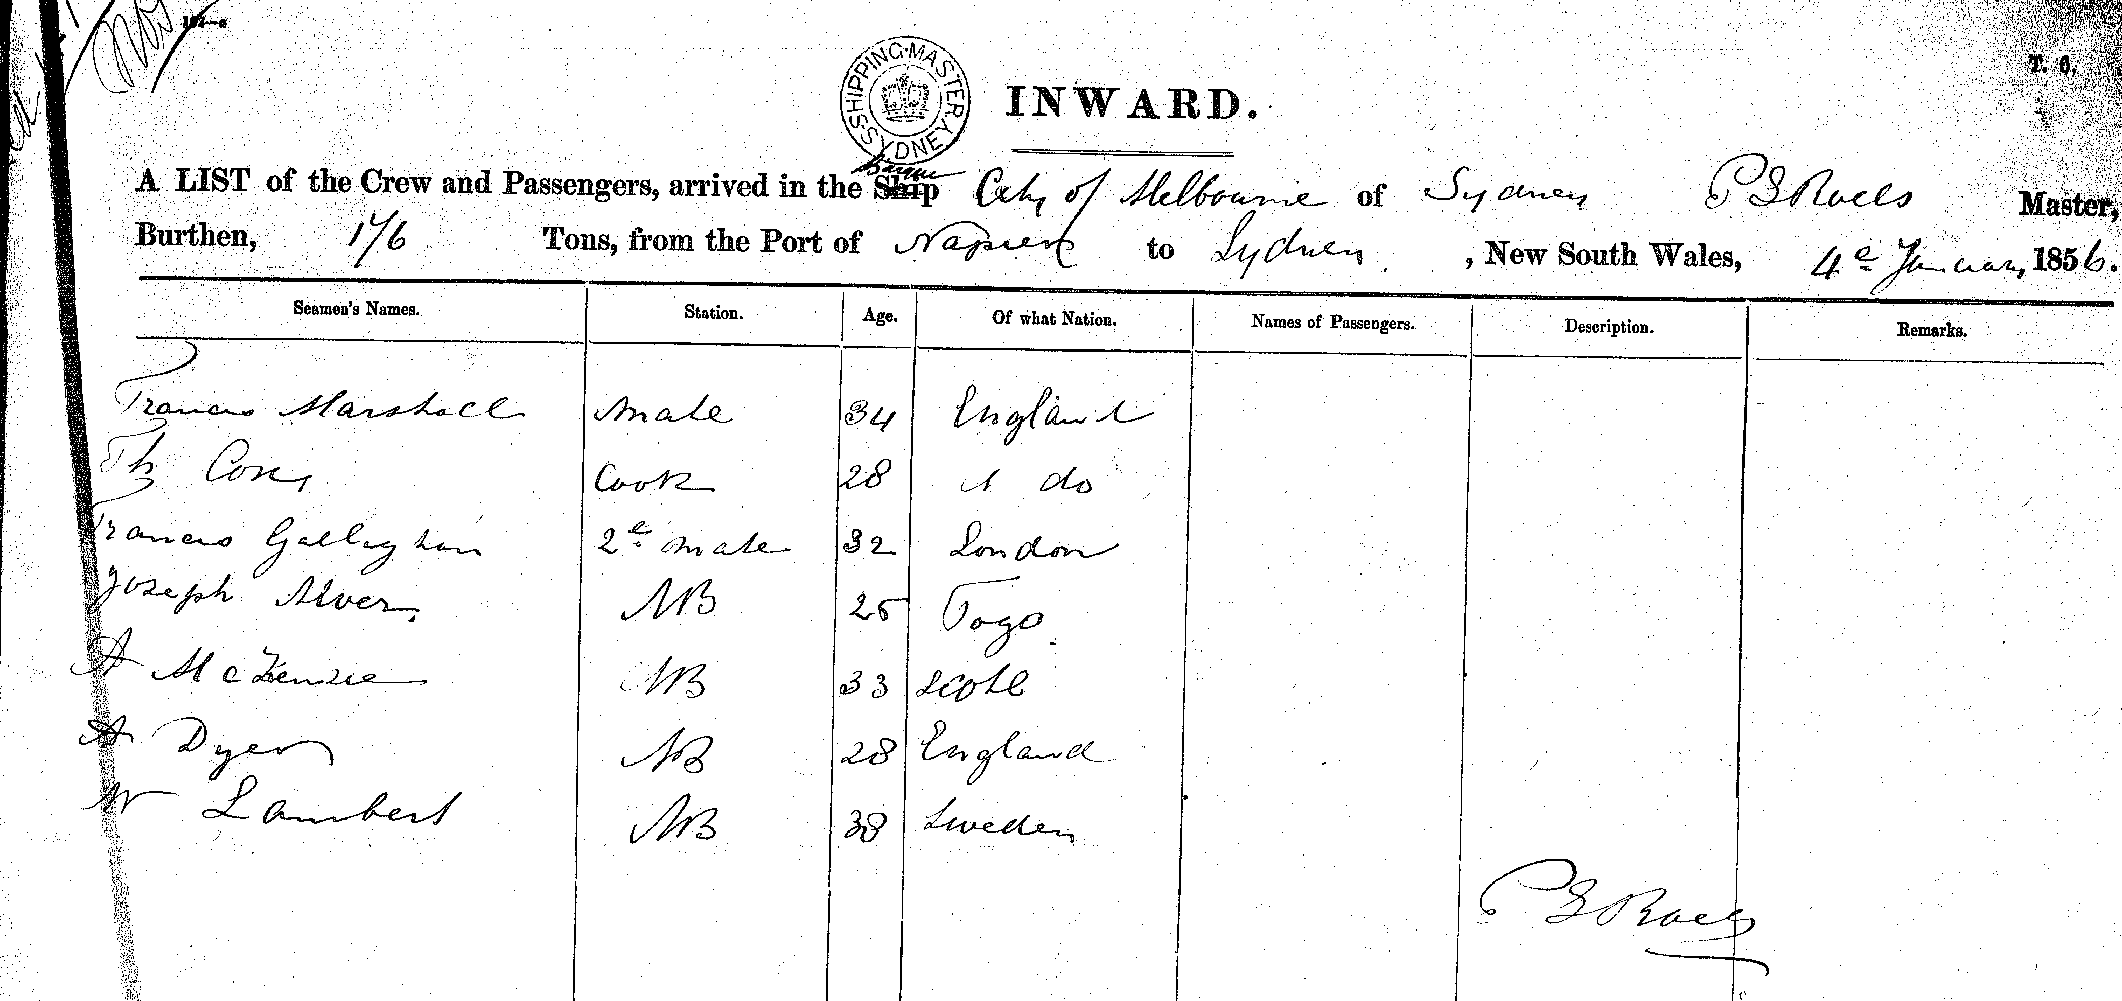 SHIPPING MASTER SYDNEY
T. 6.
INWARD.
A LIST of the Crew and Passengers, arrived in the Ship City of Melbourne of Sydney Master,
Burthen, 176 Tons, from the Port of Napier to Sydney, New South Wales, 4e January, 1856.
Seamen's Names. Station. Age. Of what Nation. Names of Passengers. Description. Remarks.
Francis Marshall Mate 34 England
Th Cox Cook 28 do
Francis Gallaghan 2e Mate 32 London
Joseph 25 Togo
A McKenzie AB 33 Scotl
A Dyer AB 28 England
W Lambert AB 38 Sweden